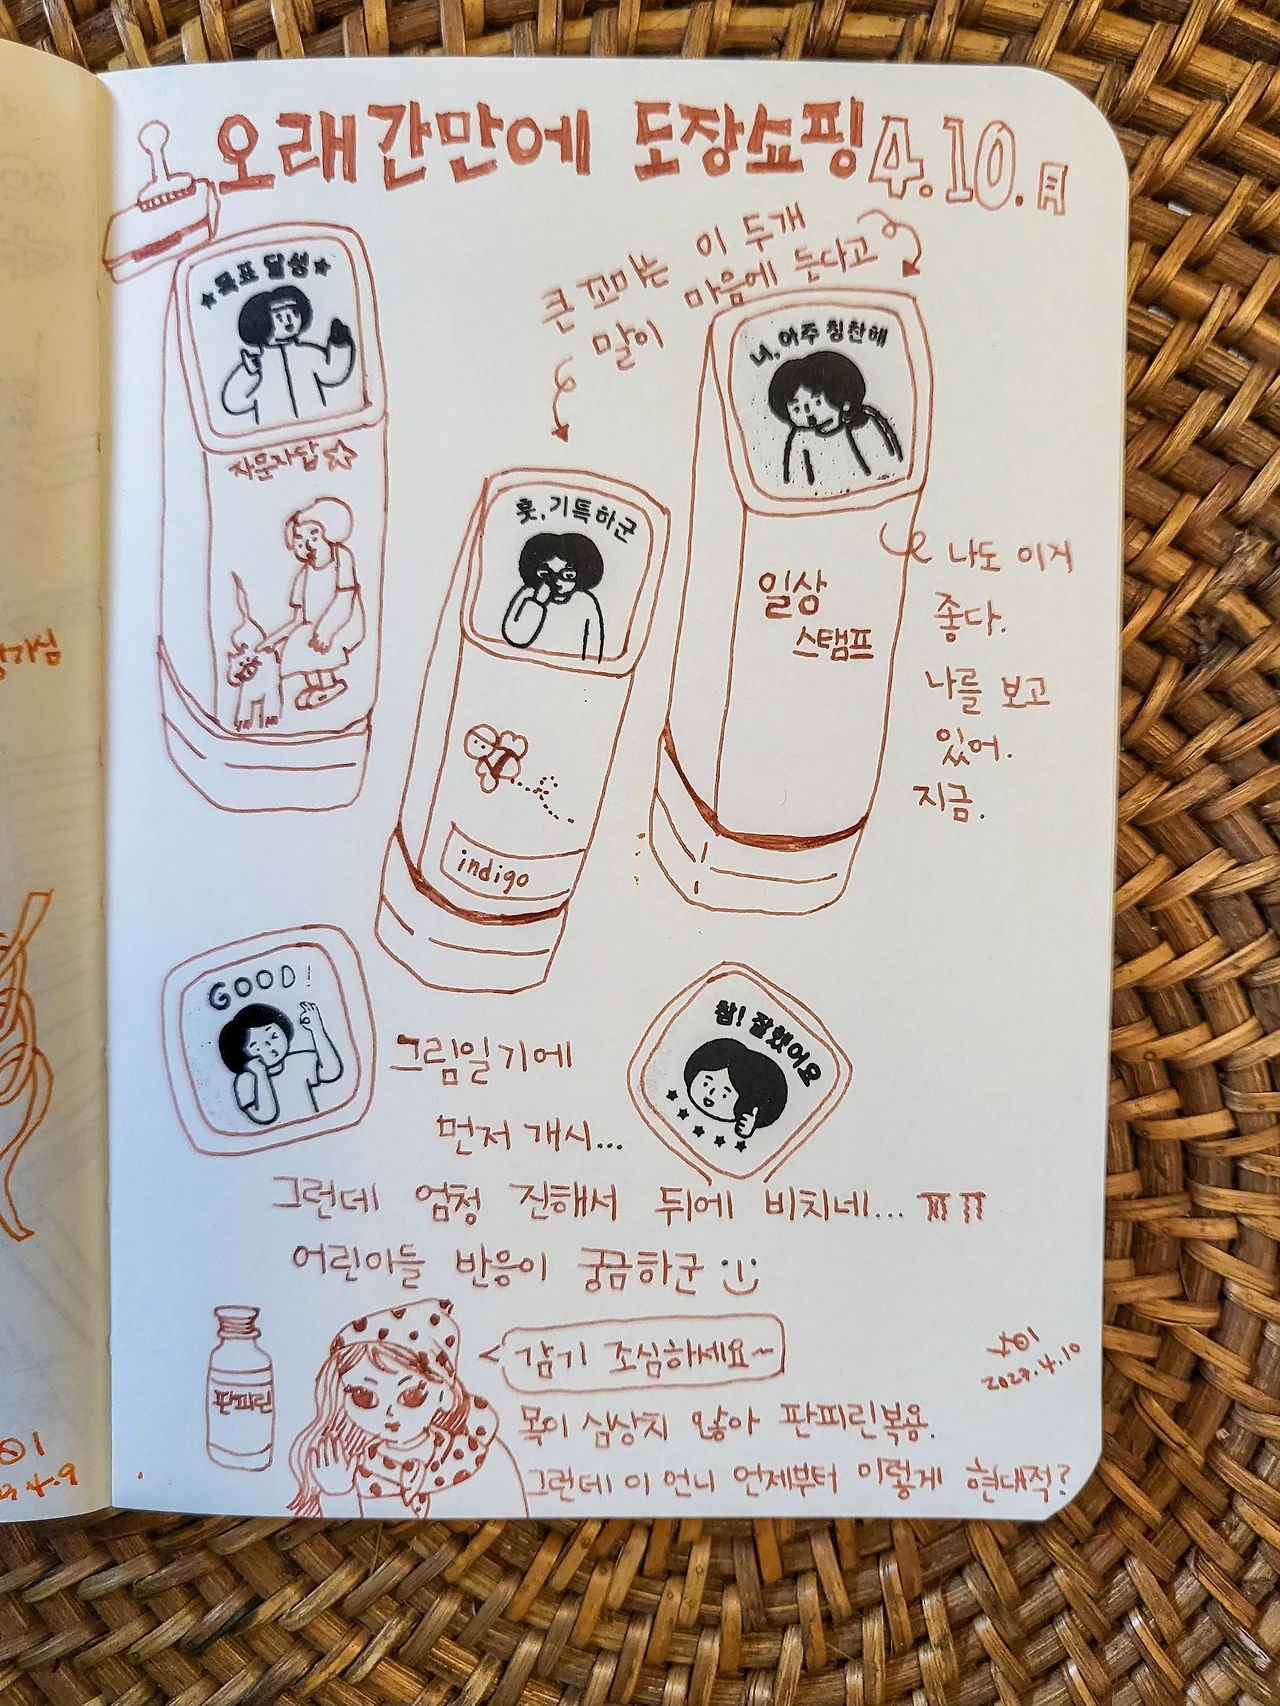 오래간만에 도장쇼핑 4.10.月
★목표 달성★
자문자답☆
큰 꼬마는 이 두개
마음에 든다고
말이
훗, 기특하군
indigo
너, 아주 칭찬해
일상
스탬프
나도 이게
좋다.
나를 보고
있어.
지금.
GOOD!
그림일기에
먼저 개시...
참! 잘했어요
그런데 엄청 진해서 뒤에 비치네... ㅠㅠ
어린이들 반응이 궁금하군
판피린
감기 조심하세요~
목이 심상치 않아 판피린복용.
그런데 이 언니 언제부터 이렇게 현대적?
4.10
4.9